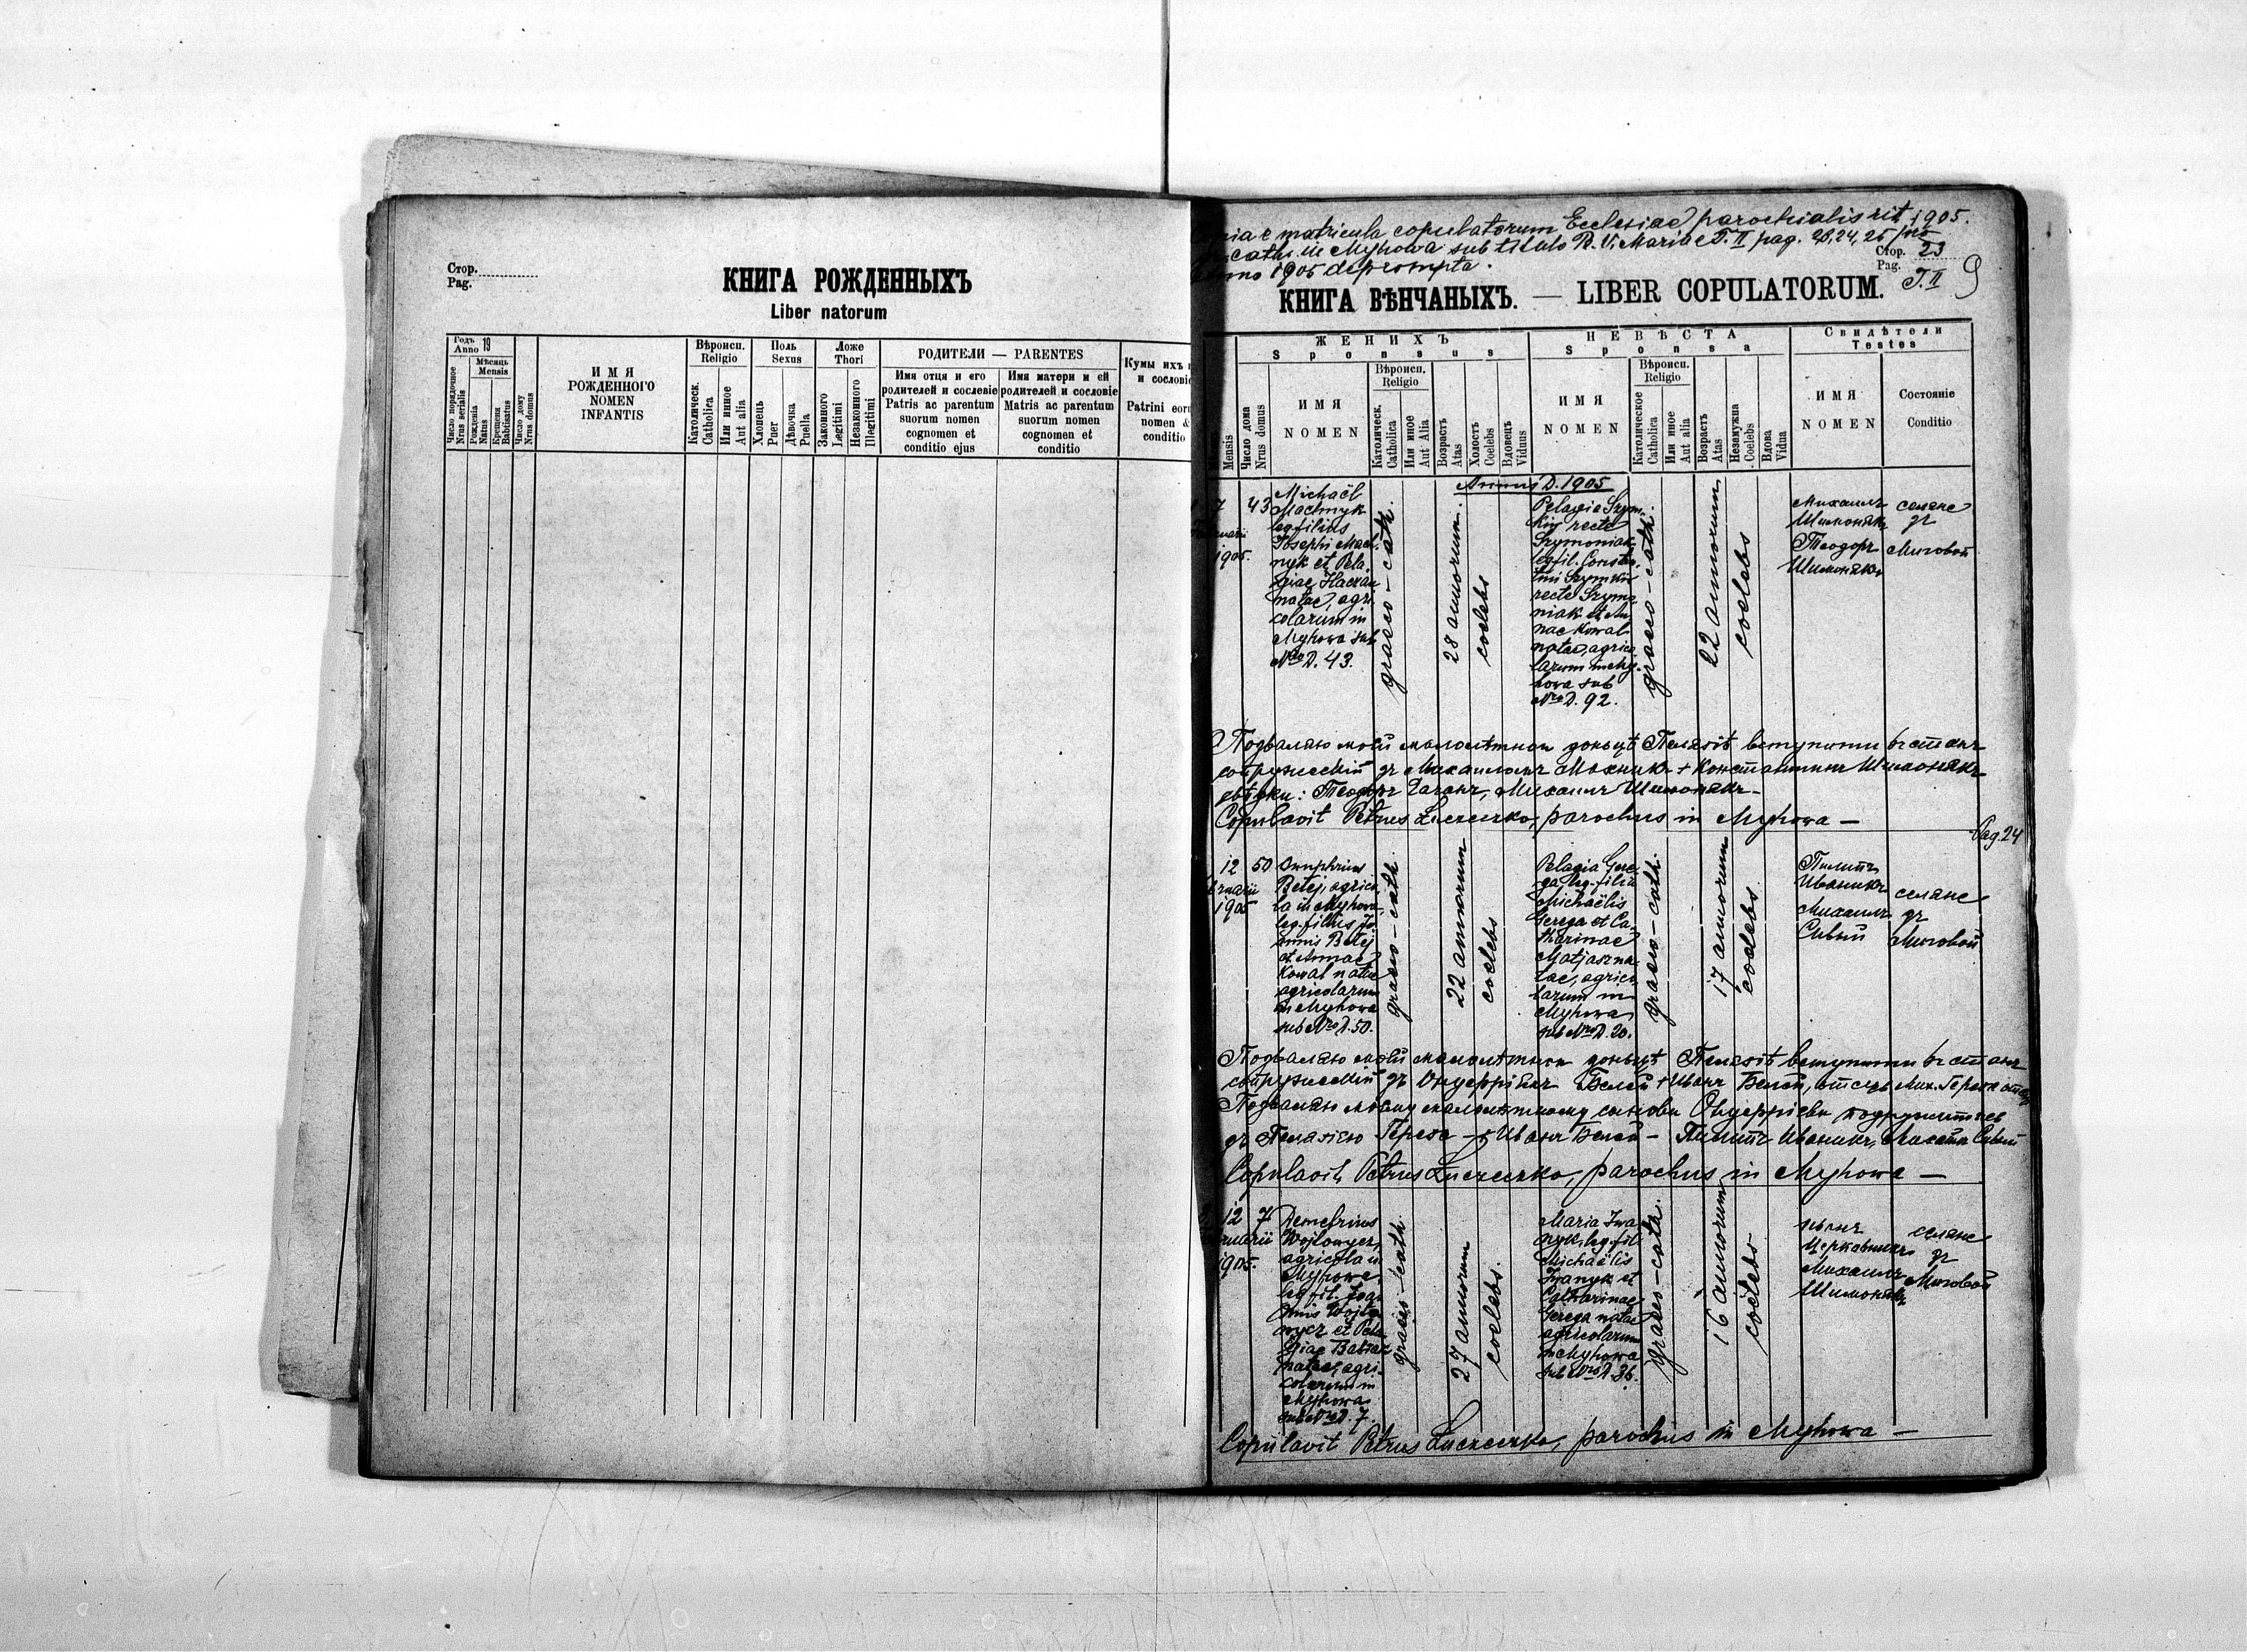 Стор.
Pag.
КНИГА РОЖДЕННЫХЪ
Liber natorum
Годъ 19
Anno
Мѣсяць
Mensis
Число порядочное
Nrus serialis
Рожденія
Natus
Крещенія
Babtisatus
Число дому
Nrus domus
И М Я
РОЖДЕННОГО
NOMEN
INFANTIS
Вѣроисп.
Religio
Католическ.
Catholica
Или инное
Aut alia
Поль
Sexus
Хлопець
Puer
Дѣвочка
Puella
Ложе
Thori
Законного
Legitimi
Незаконного
Illegitimi
РОДИТЕЛИ — PARENTES
Имя отця и его
родителей и сословіе
Patris ac parentum
suorum nomen
cognomen et
conditio ejus
Имя матери и ей
родителей и сословіе
Matris ac parentum
suorum nomen
cognomen et
conditio
Кумы ихъ
и сословіе
Patrini eor
nomen &
conditio
matricula copulatorum Ecclesiae parochialis rit. 1905.
cath. in Myhowa sub titulo B. V. Mariae T. II pag. 23, 24, 25 pro
anno 1905 deprompta.
Стор. 23
Pag.
T. II 9
КНИГА ВѢНЧАНЫХЪ. — LIBER COPULATORUM.
Mensis
Число дома
Nrus domus
Ж Е Н И Х Ъ
S p o n s u s
И М Я
N O M E N
Вѣроисп.
Religio
Католическ.
Catholica
Или иное
Aut Alia
Возрастъ
Atas
Холостъ
Coelebs
Вдовецъ
Viduus
Н Е В Ѣ С Т А
S p o n s a
И М Я
N O M E N
Вѣроисп.
Religio
Католическое
Catholica
Или иное
Aut alia
Возрастъ
Atas
Незамужна
Coelebs
Вдова
Vidua
Свидѣтели
Testes
И М Я
N O M E N
Состояніе
Conditio
Annus D. 1905
7
1905.
43
Michaël
Machnyk
leg. filius
Josephi Mach-
nyk et Pela-
giae
natae, agri-
colarum in
Myhowa sub
Nro D. 43.
graeco-cath.
28 annorum.
coelebs
Pelagia Szym-
kiw recte
Szymoniak
leg. fil. Constan-
tini Szymkiw
recte Szymo-
niak et An-
nae Kowal
natae, agrico-
larum in My-
howa sub
Nro D. 92.
graeco-cath.
22 annorum
coelebs
Михаилъ
Шимонякъ
Теодоръ
Шимонякъ
селяне
зъ
Миговой
Подваляю моей малолѣтной доньцѣ Пелагіѣ вступити въ станъ
супружескій зъ Михаиломъ Махникъ + Константинъ Шимонякъ
свѣдки: Теодоръ Гаганъ, Михаилъ Шимонякъ —
Copulavit Petrus Łuczeczko, parochus in Myhowa —
Pag. 24
12
1905
50
Onuphrius
Betej, agrico-
la in Myhowa,
leg. filius Jo-
annis Betej
et Annae
Kowal natae
agricolarum
in Myhowa
sub Nro D. 50.
graeco-cath.
22 annorum
coelebs
Pelagia Gere-
ga leg. filia
Michaëlis
Gerega et Ca-
tharinae
Matjasz na-
tae, agrico-
larum in
Myhowa
sub Nro D. 20.
graeco-cath.
17 annorum
coelebs
Пилипъ
Иваникъ
Михаилъ
Сивый
селяне
зъ
Миговой
Подваляю моей малолѣтной доньцѣ Пелагіѣ вступити въ станъ
супружескій зъ Онуфріемъ Бетей + Иванъ Бетей, отецъ Мих. Герега отецъ
Подваляю моему малолѣтному сынови Онуфріеви подружитися
зъ Пелагіею Герега — + Иванъ Бетей — Пилипъ Иваникъ, Михаилъ Сивый
Copulavit Petrus Łuczeczko, parochus in Myhowa —
12
1905.
7
Demetrius
Wojtowycz,
agricola in
Myhowa,
leg. fil. Joa-
nnis Wojto-
wycz et Pela-
giae
natae, agri-
colarum in
Myhowa
sub Nro D. 7.
graeco-cath.
27 annorum
coelebs.
Maria Iwa-
nyk, leg. fil.
Michaëlis
Iwanyk et
Catharinae
Gerega natae
agricolarum
in Myhowa
sub Nro D. 36.
graeco-cath.
16 annorum
coelebs
Иванъ
Михаилъ
Шимонякъ
селяне
зъ
Миговой
Copulavit Petrus Łuczeczko, parochus in Myhowa —